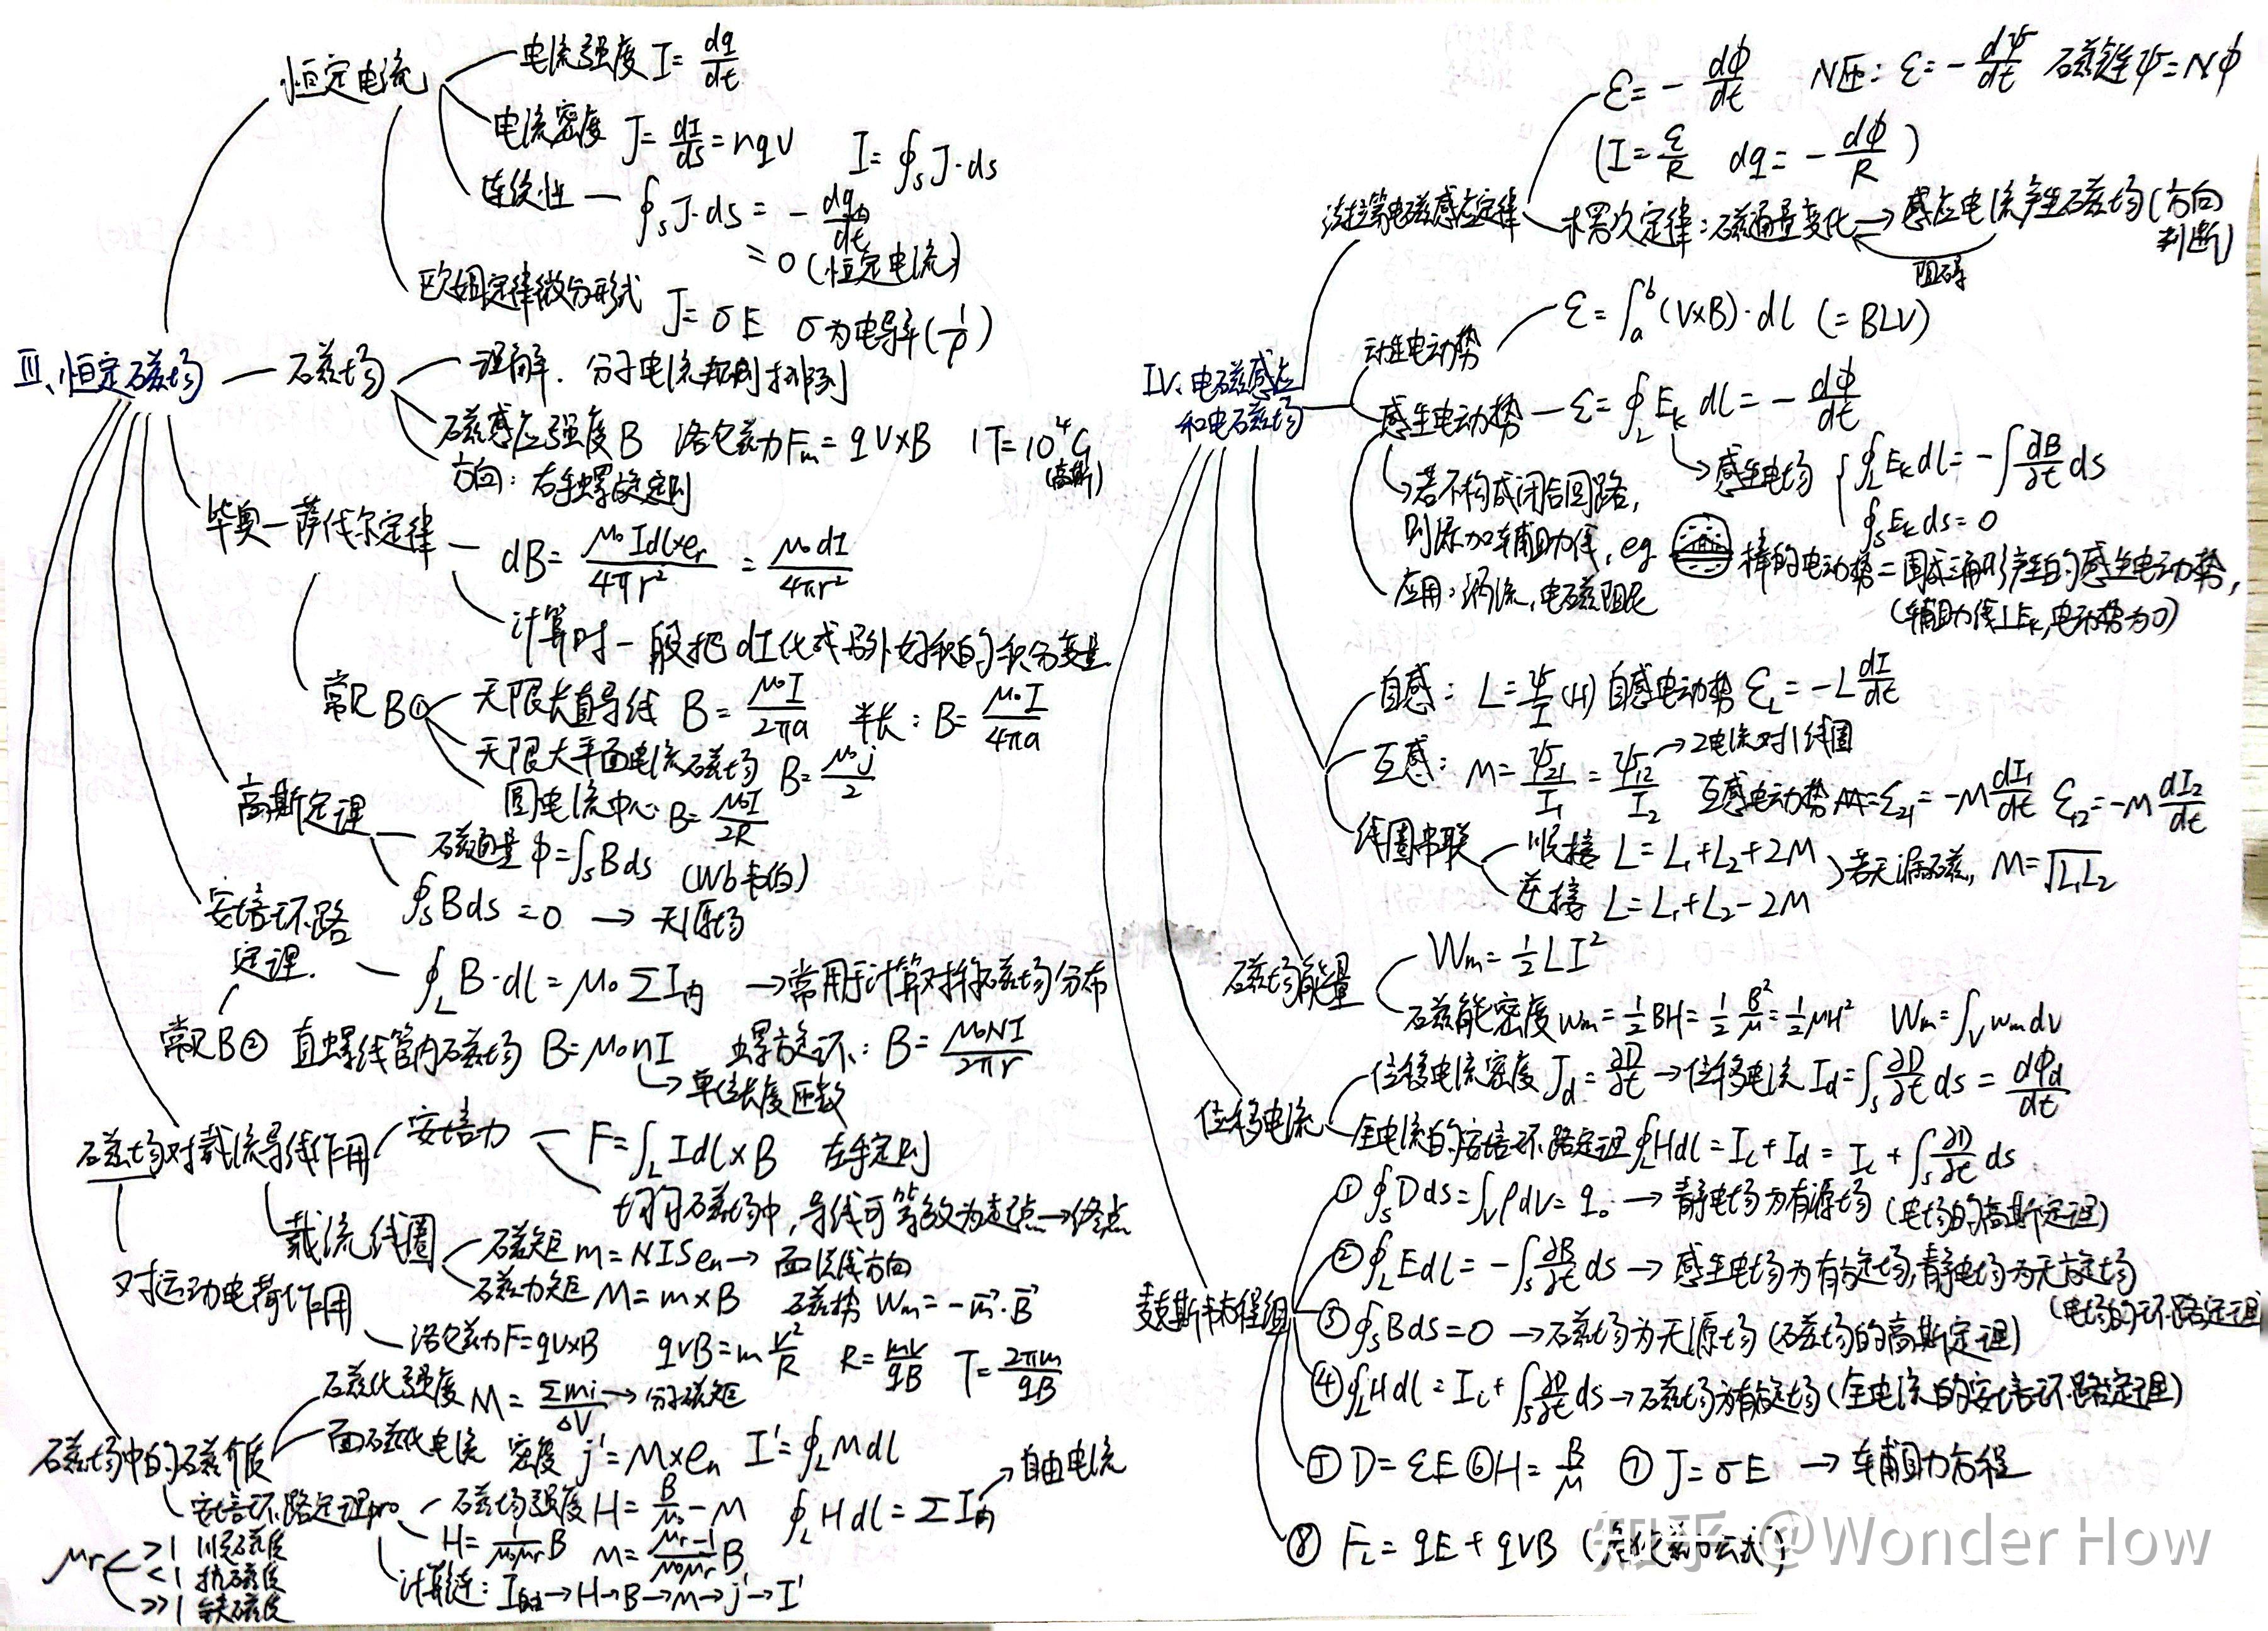 恒定电流
电流强度 I = dq/dt
电流密度 J = dI/ds = nqv  I = ∮s J·ds
连续性 — ∮s J·ds = - dq内/dt
= 0 (恒定电流)
欧姆定律微分形式 J = σE σ为电导率(1/ρ)
III、恒定磁场 — 磁场
理解. 分子电流规则排列
磁感应强度B 洛仑兹力Fm = qv×B 1T = 10⁴G
(高斯)
方向: 右手螺旋定则
毕奥—萨伐尔定律
dB = μ₀Idl×er/4πr² = μ₀dI/4πr²
计算时一般把dI化成另外好积的积分变量
常见B①
无限长直导线 B = μ₀I/2πa 半长: B = μ₀I/4πa
无限大平面电流磁场 B = μ₀j/2
圆电流中心: B = μ₀I/2R
高斯定理
磁通量 Φ = ∫s B ds (Wb韦伯)
∮s B ds = 0 → 无源场
安培环路
定理.
∮L B·dl = μ₀ΣI内 → 常用于计算对称磁场分布
常见B② 直螺线管内磁场 B = μ₀nI 螺旋环: B = μ₀NI/2πr
→ 单位长度匝数
磁场对载流导线作用
安培力 — F = ∫L Idl×B 左手定则
匀磁场中, 导线可等效为起点→终点
载流线圈
磁矩 m = NISen → 面法线方向
磁力矩 M = m×B 磁势 Wm = -m⃗·B⃗
对运动电荷作用
洛仑兹力F = qv×B qvB = m v²/R R = mv/qB T = 2πm/qB
磁场中的磁介质
磁化强度 M = Σmi/ΔV → 分子磁矩
面磁化电流 密度 j' = M×en I' = ∮L M dl
安培环路定理pro
磁场强度 H = B/μ₀ - M ∮L H dl = ΣI内 → 自由电流
H = 1/μ₀μr B M = μr-1/μ₀μr B
计算链: I自由→H→B→M→j'→I'
μr
>1 顺磁质
<1 抗磁质
>>1 铁磁质
IV、电磁感应
和电磁场
法拉第电磁感应定律
ε = - dΦ/dt N匝: ε = - dψ/dt 磁链ψ = NΦ
(I = ε/R dq = - dΦ/R)
楞次定律: 磁通量变化 → 感应电流产生磁场(方向
判断)
阻碍
动生电动势
ε = ∫ₐᵇ (v×B)·dl (= BLV)
感生电动势 — ε = ∮L Ek dl = - dΦ/dt
→ 感生电场 { ∮L Ek dl = - ∫ ∂B/∂t ds
∮s Ek ds = 0
→ 若不构成闭合回路,
则添加辅助线, eg 棒的电动势 = 围成三角形产生的感生电动势,
(辅助线⊥Ek, 电动势为0)
应用: 涡流, 电磁阻尼
自感: L = ψ/I (H) 自感电动势 εL = -L dI/dt
互感: M = ψ21/I1 = ψ12/I2 → 2电流对1线圈
互感电动势 ε21 = -M dI1/dt ε12 = -M dI2/dt
线圈串联
顺接 L = L1+L2+2M
逆接 L = L1+L2-2M
若无漏磁, M = √L1L2
磁场能量
Wm = ½LI²
磁能密度 wm = ½BH = ½ B²/μ = ½μH² Wm = ∫v wm dv
位移电流
位移电流密度 Jd = ∂D/∂t → 位移电流 Id = ∫s ∂D/∂t ds = dΦd/dt
全电流的安培环路定理 ∮L H dl = Ic + Id = Ic + ∫s ∂D/∂t ds
麦克斯韦方程组
① ∮s D ds = ∫v ρ dv = q₀ → 静电场为有源场 (电场的高斯定理)
② ∮L E dl = - ∫s ∂B/∂t ds → 感生电场为有旋场, 静电场为无旋场
(电场的环路定理)
③ ∮s B ds = 0 → 磁场为无源场 (磁场的高斯定理)
④ ∮L H dl = Ic + ∫s ∂D/∂t ds → 磁场为有旋场 (全电流的安培环路定理)
⑤ D = εE ⑥ H = B/μ ⑦ J = σE → 辅助方程
⑧ FL = qE + qvB (洛伦兹力公式)
知乎 @Wonder How